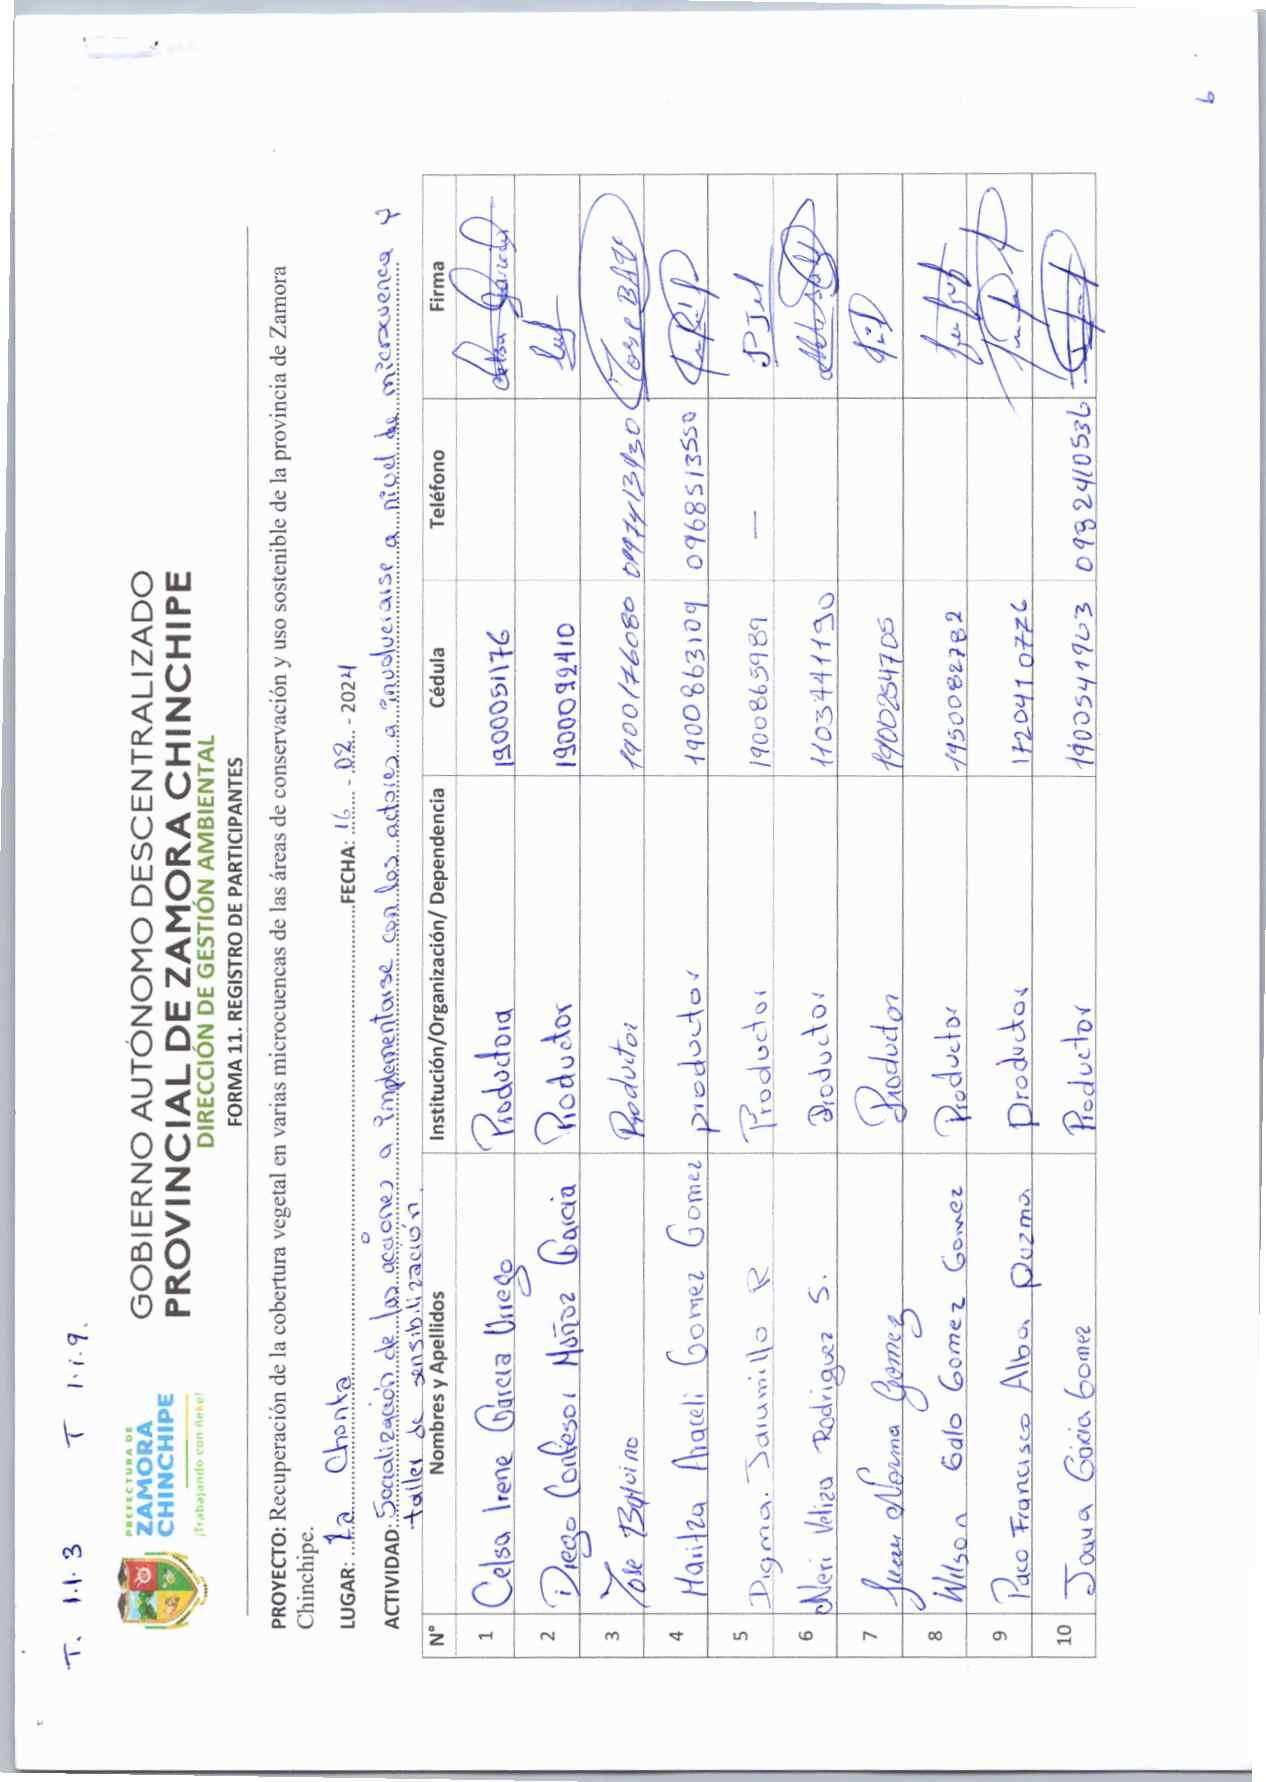 T. 1.1.3 T 1.1.9.
PREFECTURA DE
ZAMORA
CHINCHIPE
¡Trabajando con ñeke!
GOBIERNO AUTÓNOMO DESCENTRALIZADO
PROVINCIAL DE ZAMORA CHINCHIPE
DIRECCIÓN DE GESTIÓN AMBIENTAL
FORMA 11. REGISTRO DE PARTICIPANTES
PROYECTO: Recuperación de la cobertura vegetal en varias microcuencas de las áreas de conservación y uso sostenible de la provincia de Zamora
Chinchipe.
LUGAR: La Chonta FECHA: 16 - 02 - 2024
ACTIVIDAD: Socialización de las acciones a implementarse con los actores a involucrarse a nivel de microcuenca y
taller de sensibilización.
N° Nombres y Apellidos Institución/Organización/ Dependencia Cédula Teléfono Firma
1 Celsa Irene Garcia Urrego Productora 1900051176
2 Diego Confesor Muñoz Garcia Productor 1900092410
3 Jose Balvino Productor 1900176080 Jose BALV
4 Maritza Araceli Gomez Gomez productor 1900863109 0968513550
5 Digma. Jaramillo R Productor 1900865989 — DJel
6 Neri Veliza Rodriguez S. Productor 1103441190
7 Norma Gomez Productor 1900254705
8 Wilson Gomez Gomez Productor 1950082782
9 Paco Francisco Alba Productor 1720410776
10 Garcia Gomez Productor 1900541903 0982410536
6